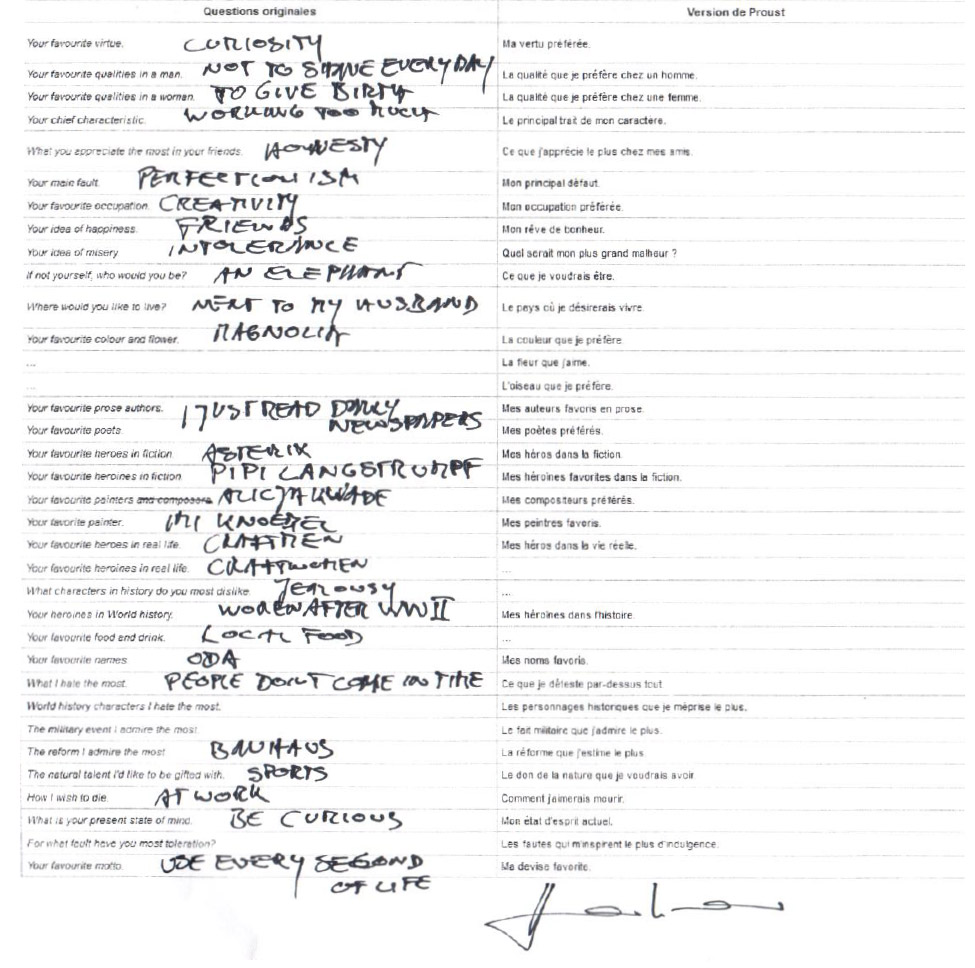 Questions originales Version de Proust
Your favourite virtue. CURIOSITY Ma vertu préférée.
Your favourite qualities in a man. NOT TO SHAVE EVERY DAY La qualité que je préfère chez un homme.
Your favourite qualities in a woman. TO GIVE BIRTH La qualité que je préfère chez une femme.
Your chief characteristic. WORKING TOO MUCH Le principal trait de mon caractère.
What you appreciate the most in your friends. HONNESTY Ce que j'apprécie le plus chez mes amis.
Your main fault. PERFECTIONISM Mon principal défaut.
Your favourite occupation. CREATIVITY Mon occupation préférée.
Your idea of happiness. FRIENDS Mon rêve de bonheur.
Your idea of misery. INTOLERANCE Quel serait mon plus grand malheur ?
If not yourself, who would you be? AN ELEPHANT Ce que je voudrais être.
Where would you like to live? NEXT TO MY HUSBAND Le pays où je désirerais vivre.
Your favourite colour and flower. MAGNOLIA La couleur que je préfère
... La fleur que j'aime.
... L'oiseau que je préfère.
Your favourite prose authors. I JUST READ DAILY Mes auteurs favoris en prose.
Your favourite poets. NEWSPAPERS Mes poètes préférés.
Your favourite heroes in fiction. ASTERIX Mes héros dans la fiction.
Your favourite heroines in fiction. PIPI LANGSTRUMPF Mes héroïnes favorites dans la fiction.
Your favourite painters and composers ALICJA KWADE Mes compositeurs préférés.
Your favorite painter. IMI KNOEBEL Mes peintres favoris.
Your favourite heroes in real life. CRAFTMEN Mes héros dans la vie réelle.
Your favourite heroines in real life. CRAFTWOMEN ...
What characters in history do you most dislike. JEALOUSY ...
Your heroines in World history. WOMEN AFTER WWII Mes héroïnes dans l'histoire.
Your favourite food and drink. LOCAL FOOD ...
Your favourite names. ODA Mes noms favoris.
What I hate the most. PEOPLE DON'T COME IN TIME Ce que je déteste par-dessus tout
World history characters I hate the most. Les personnages historiques que je méprise le plus.
The military event I admire the most. Le fait militaire que j'admire le plus.
The reform I admire the most BAUHAUS La réforme que j'estime le plus.
The natural talent I'd like to be gifted with. SPORTS Le don de la nature que je voudrais avoir.
How I wish to die. AT WORK Comment j'aimerais mourir.
What is your present state of mind. BE CURIOUS Mon état d'esprit actuel.
For what fault have you most toleration? Les fautes qui m'inspirent le plus d'indulgence.
Your favourite motto. USE EVERY SECOND Ma devise favorite.
OF LIFE